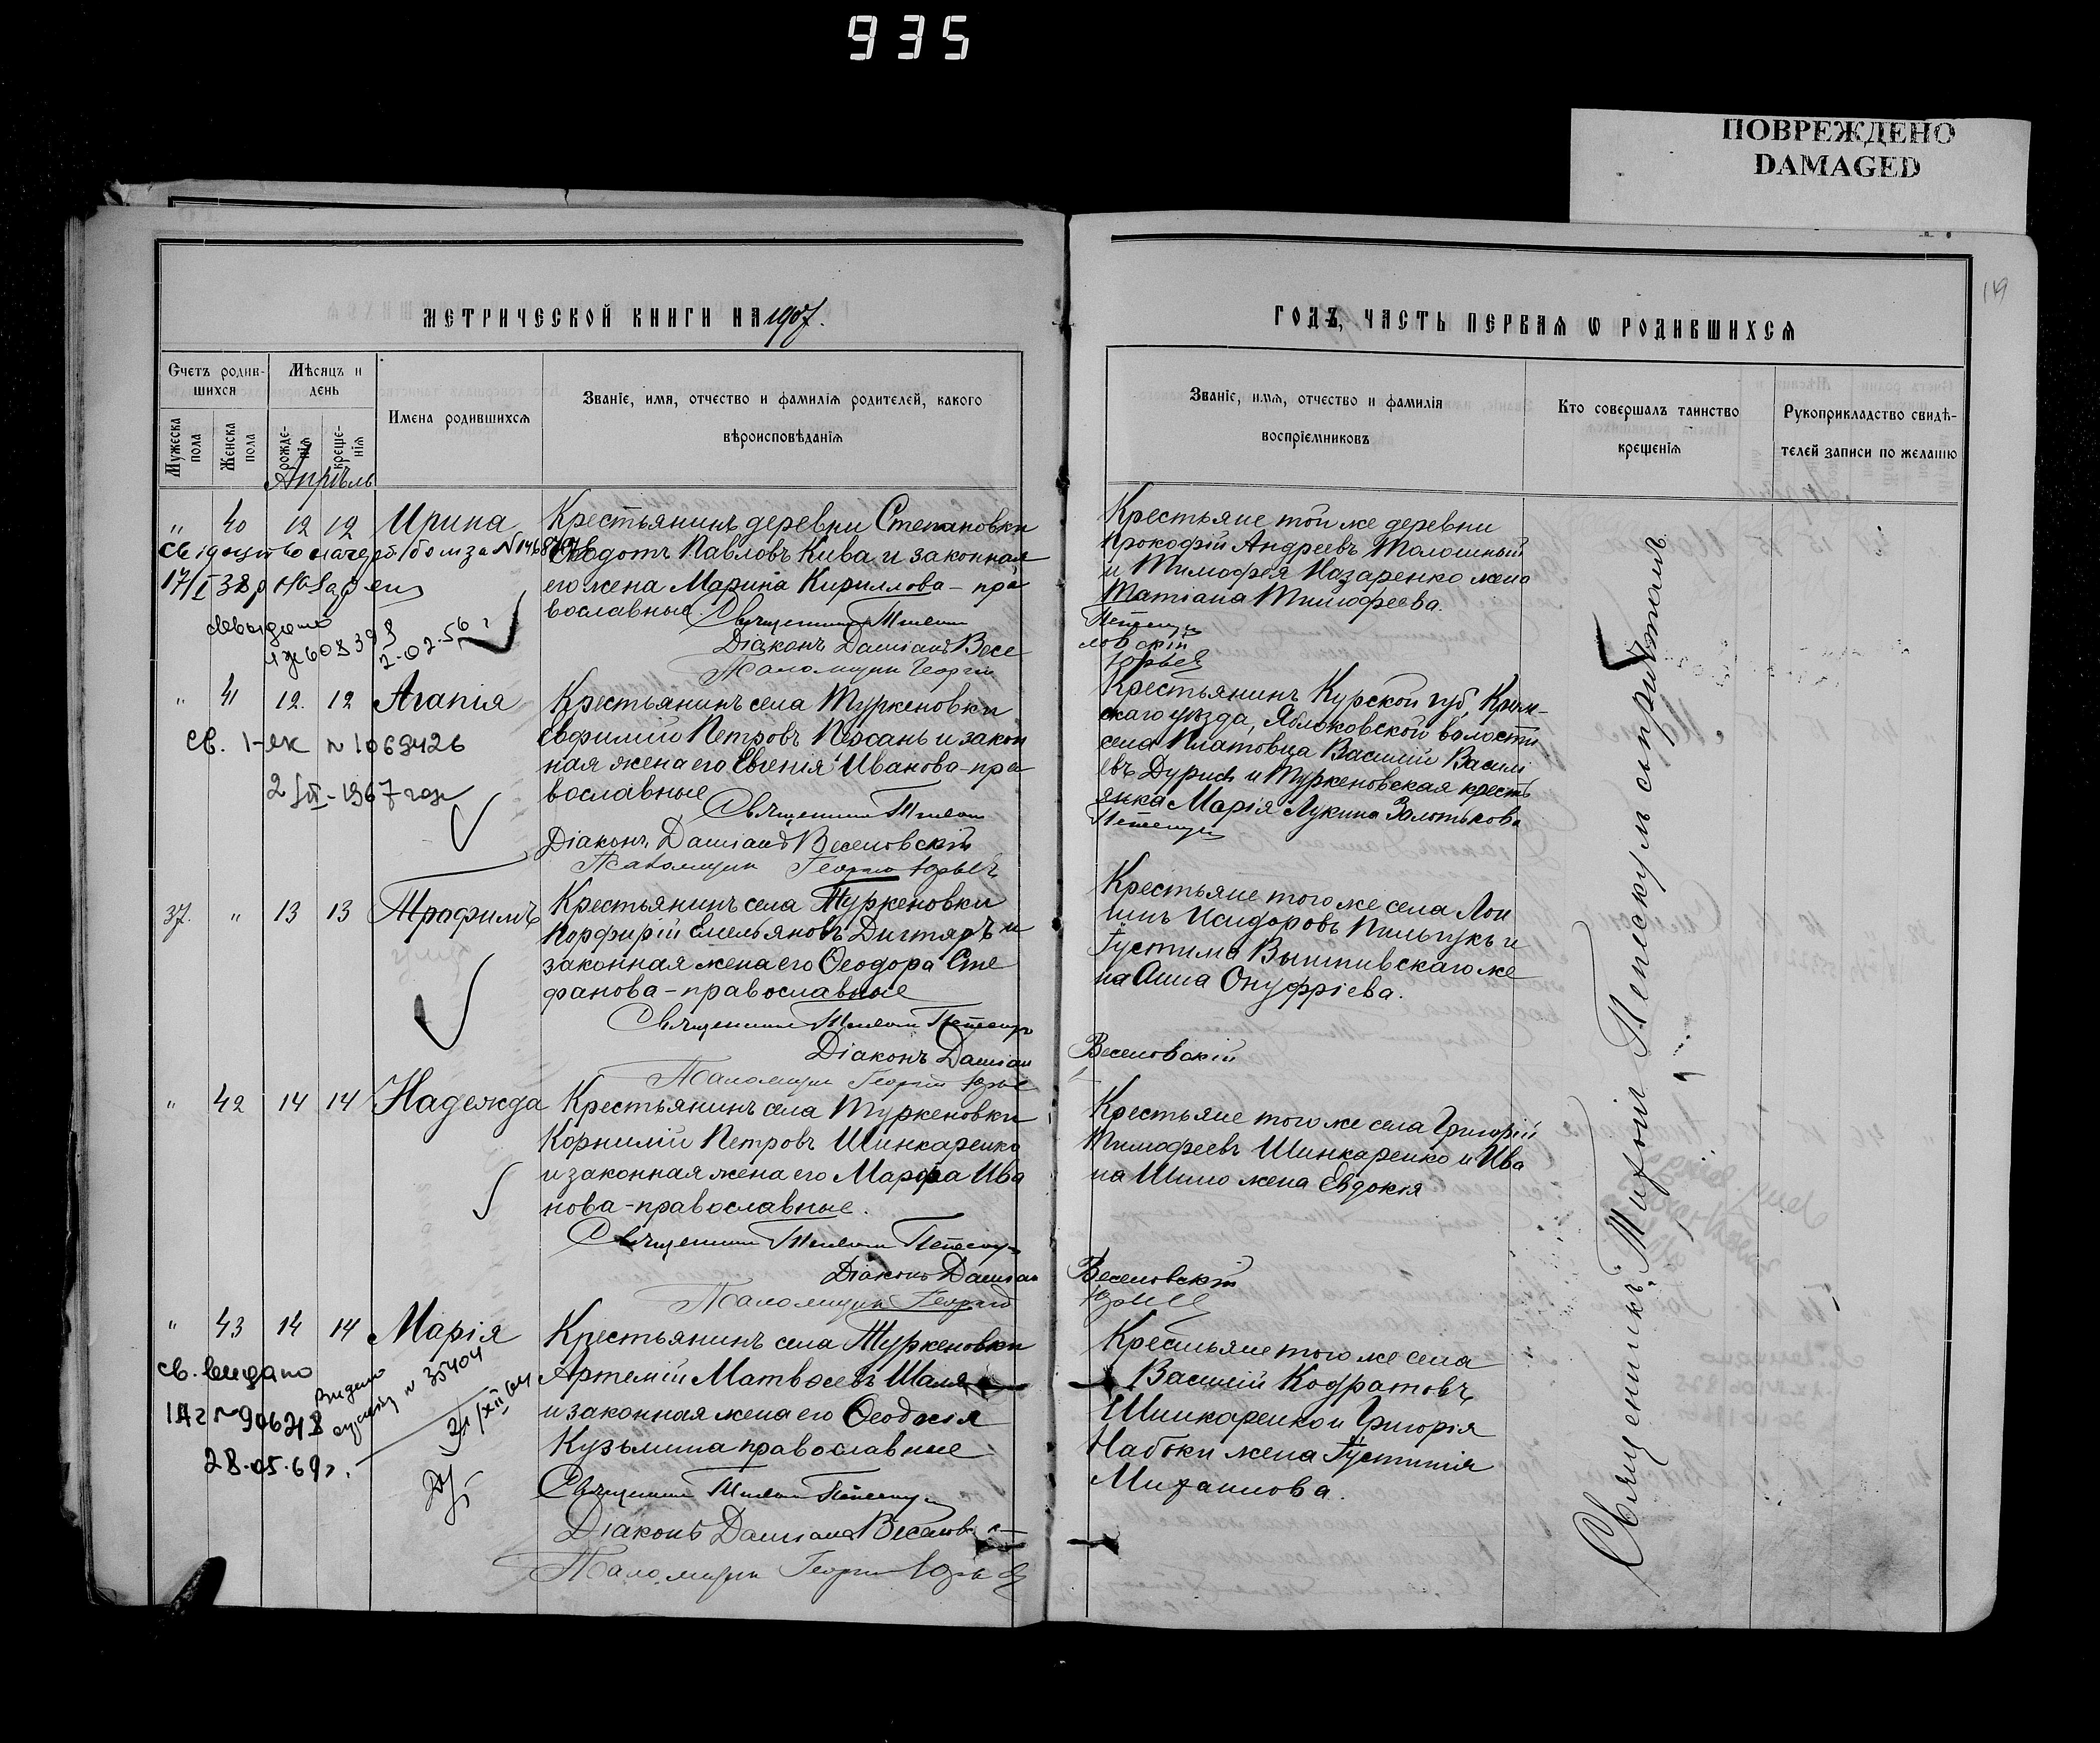 935
ПОВРЕЖДЕНО
DAMAGED
119
МЕТРИЧЕСКОЙ КНИГИ НА 1907.
ГОДЪ, ЧАСТЬ ПЕРВАЯ Ѡ РОДИВШИХСЯ
Счетъ родив-
шихся
Мужеска пола
Женска пола
Мѣсяцъ и
день
рожде-
нія
креще-
нія
Имена родившихся
Званіе, имя, отчество и фамилія родителей, какого
вѣроисповѣданія
Званіе, имя, отчество и фамилія
воспріемниковъ
Кто совершалъ таинство
крещенія
Рукоприкладство свидѣ-
телей записи по желанію
Апрѣль
" 40 12 12 Ирина
Крестьянинъ деревни Степановки
Ѳеодотъ Павловъ Кива и законная
его жена Марина Кириллова - пра
вославные Священникъ
Діаконъ Даміанъ Весе
Псаломщик Георгій
17/I 38р
2-02-56
Крестьяне той же деревни
Прокофій Андреевъ Толошный
и Тимофея Назаренко жена
Татіана Тимофеева.
ловскій
Юрьев
" 41 12. 12 Агапія
Св. 1-як № 1069426
2/III-1967 год
Крестьянинъ села Туркеновки
Евфимій Петровъ Пехань и закон
ная жена его Евгенія Иванова - пра
вославные Священникъ
Діаконъ Даміанъ Веселовскій
Псаломщик Георгій Юрьев
Крестьянинъ Курской губ,
скаго уѣзда, Яблоковской волости
села Платовца Василій Василі
евъ и Туркеновская кресть
янка Марія Лукина Золотькова
37. " 13 13 Трофимъ
Крестьянинъ села Туркеновки
Порфирій Емельяновъ Дигтярь и
законная жена его Ѳеодора Сте
фанова - православные
Священникъ
Діаконъ Даміан
Псаломщик Георгій Юрьев
Крестьяне того же села Лон
гинъ Исидоровъ Пильчукъ и
Густима же
на Анна Онуфріева.
Веселовскій
" 42 14 14 Надежда
Крестьянинъ села Туркеновки
Корнилій Петровъ Шинкаренко
и законная жена его Марфа Ива
нова - православные.
Священникъ
Діаконъ Даміан
Псаломщик Георгій
Крестьяне того же села Григорій
Тимофеевъ Шинкаренко и Ива
на Шило жена Евдокія
Веселовскій
Юрьев
" 43 14 14 Марія
Св. видано
28.05.69г.
№ 35404
21/XII 64
Крестьянинъ села Туркеновки
Артемій Матвѣевъ
и законная жена его Ѳеодосія
Кузьмина православные
Священникъ
Діаконъ Даміанъ Веселов
Псаломщик Георгій Юрьев
Крестьяне того же села
Василій Кодратовъ
Шинкаренко и Григорія
Набоки жена Густинія
Михаилова.
Священникъ